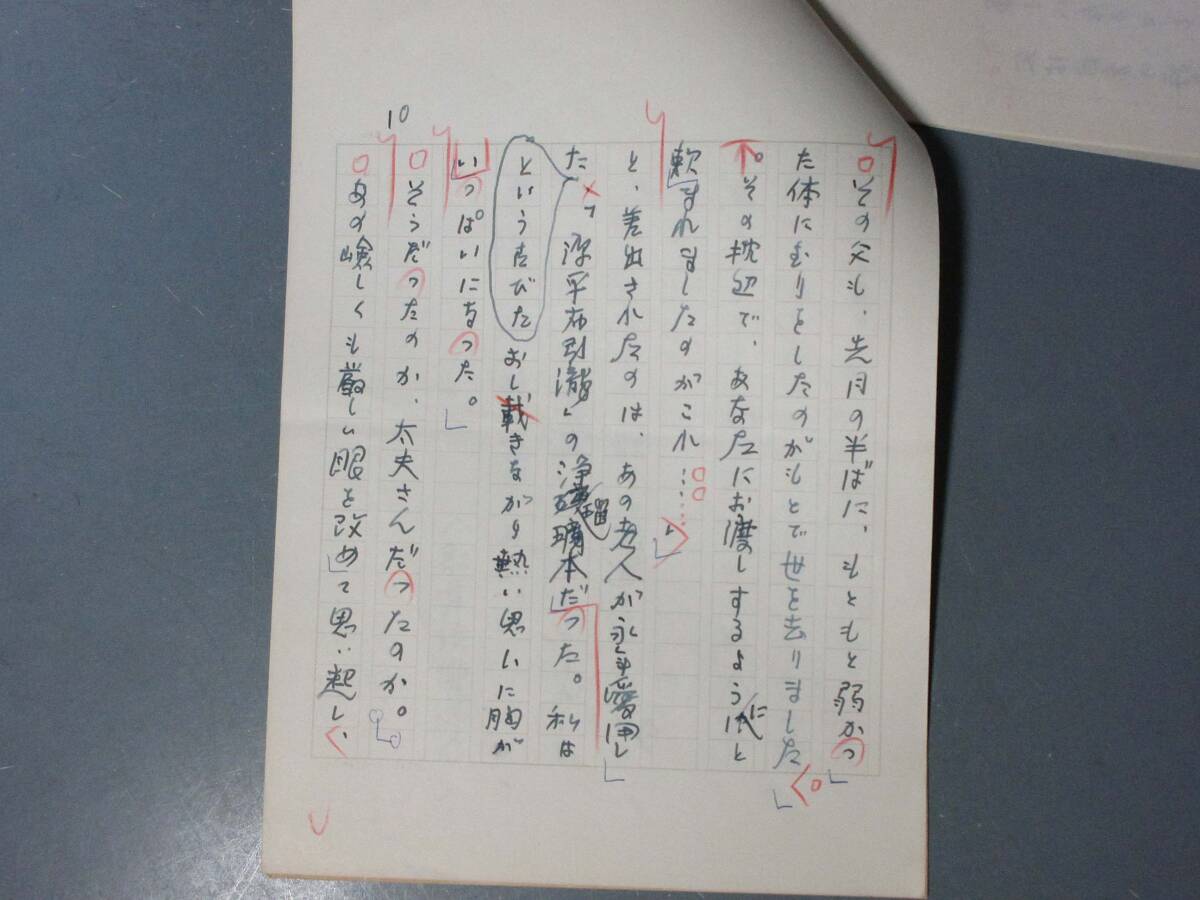 その父も、先月の半ばに、もともと弱かっ
た体にむりをしたのがもとで世を去りました
。その枕辺で、あなたにお渡しするようにと
頼まれましたのがこれ……」
と、差出されたのは、あの老人が永年愛用し
た
という古びた
「源平布引瀧」の浄瑠璃本だった。私は
おし載きながり熱い思いに胸が
いっぱいになった。
10
そうだったのか、太夫さんだったのか。
あの険しくも厳しい眼を改めて思い起し、